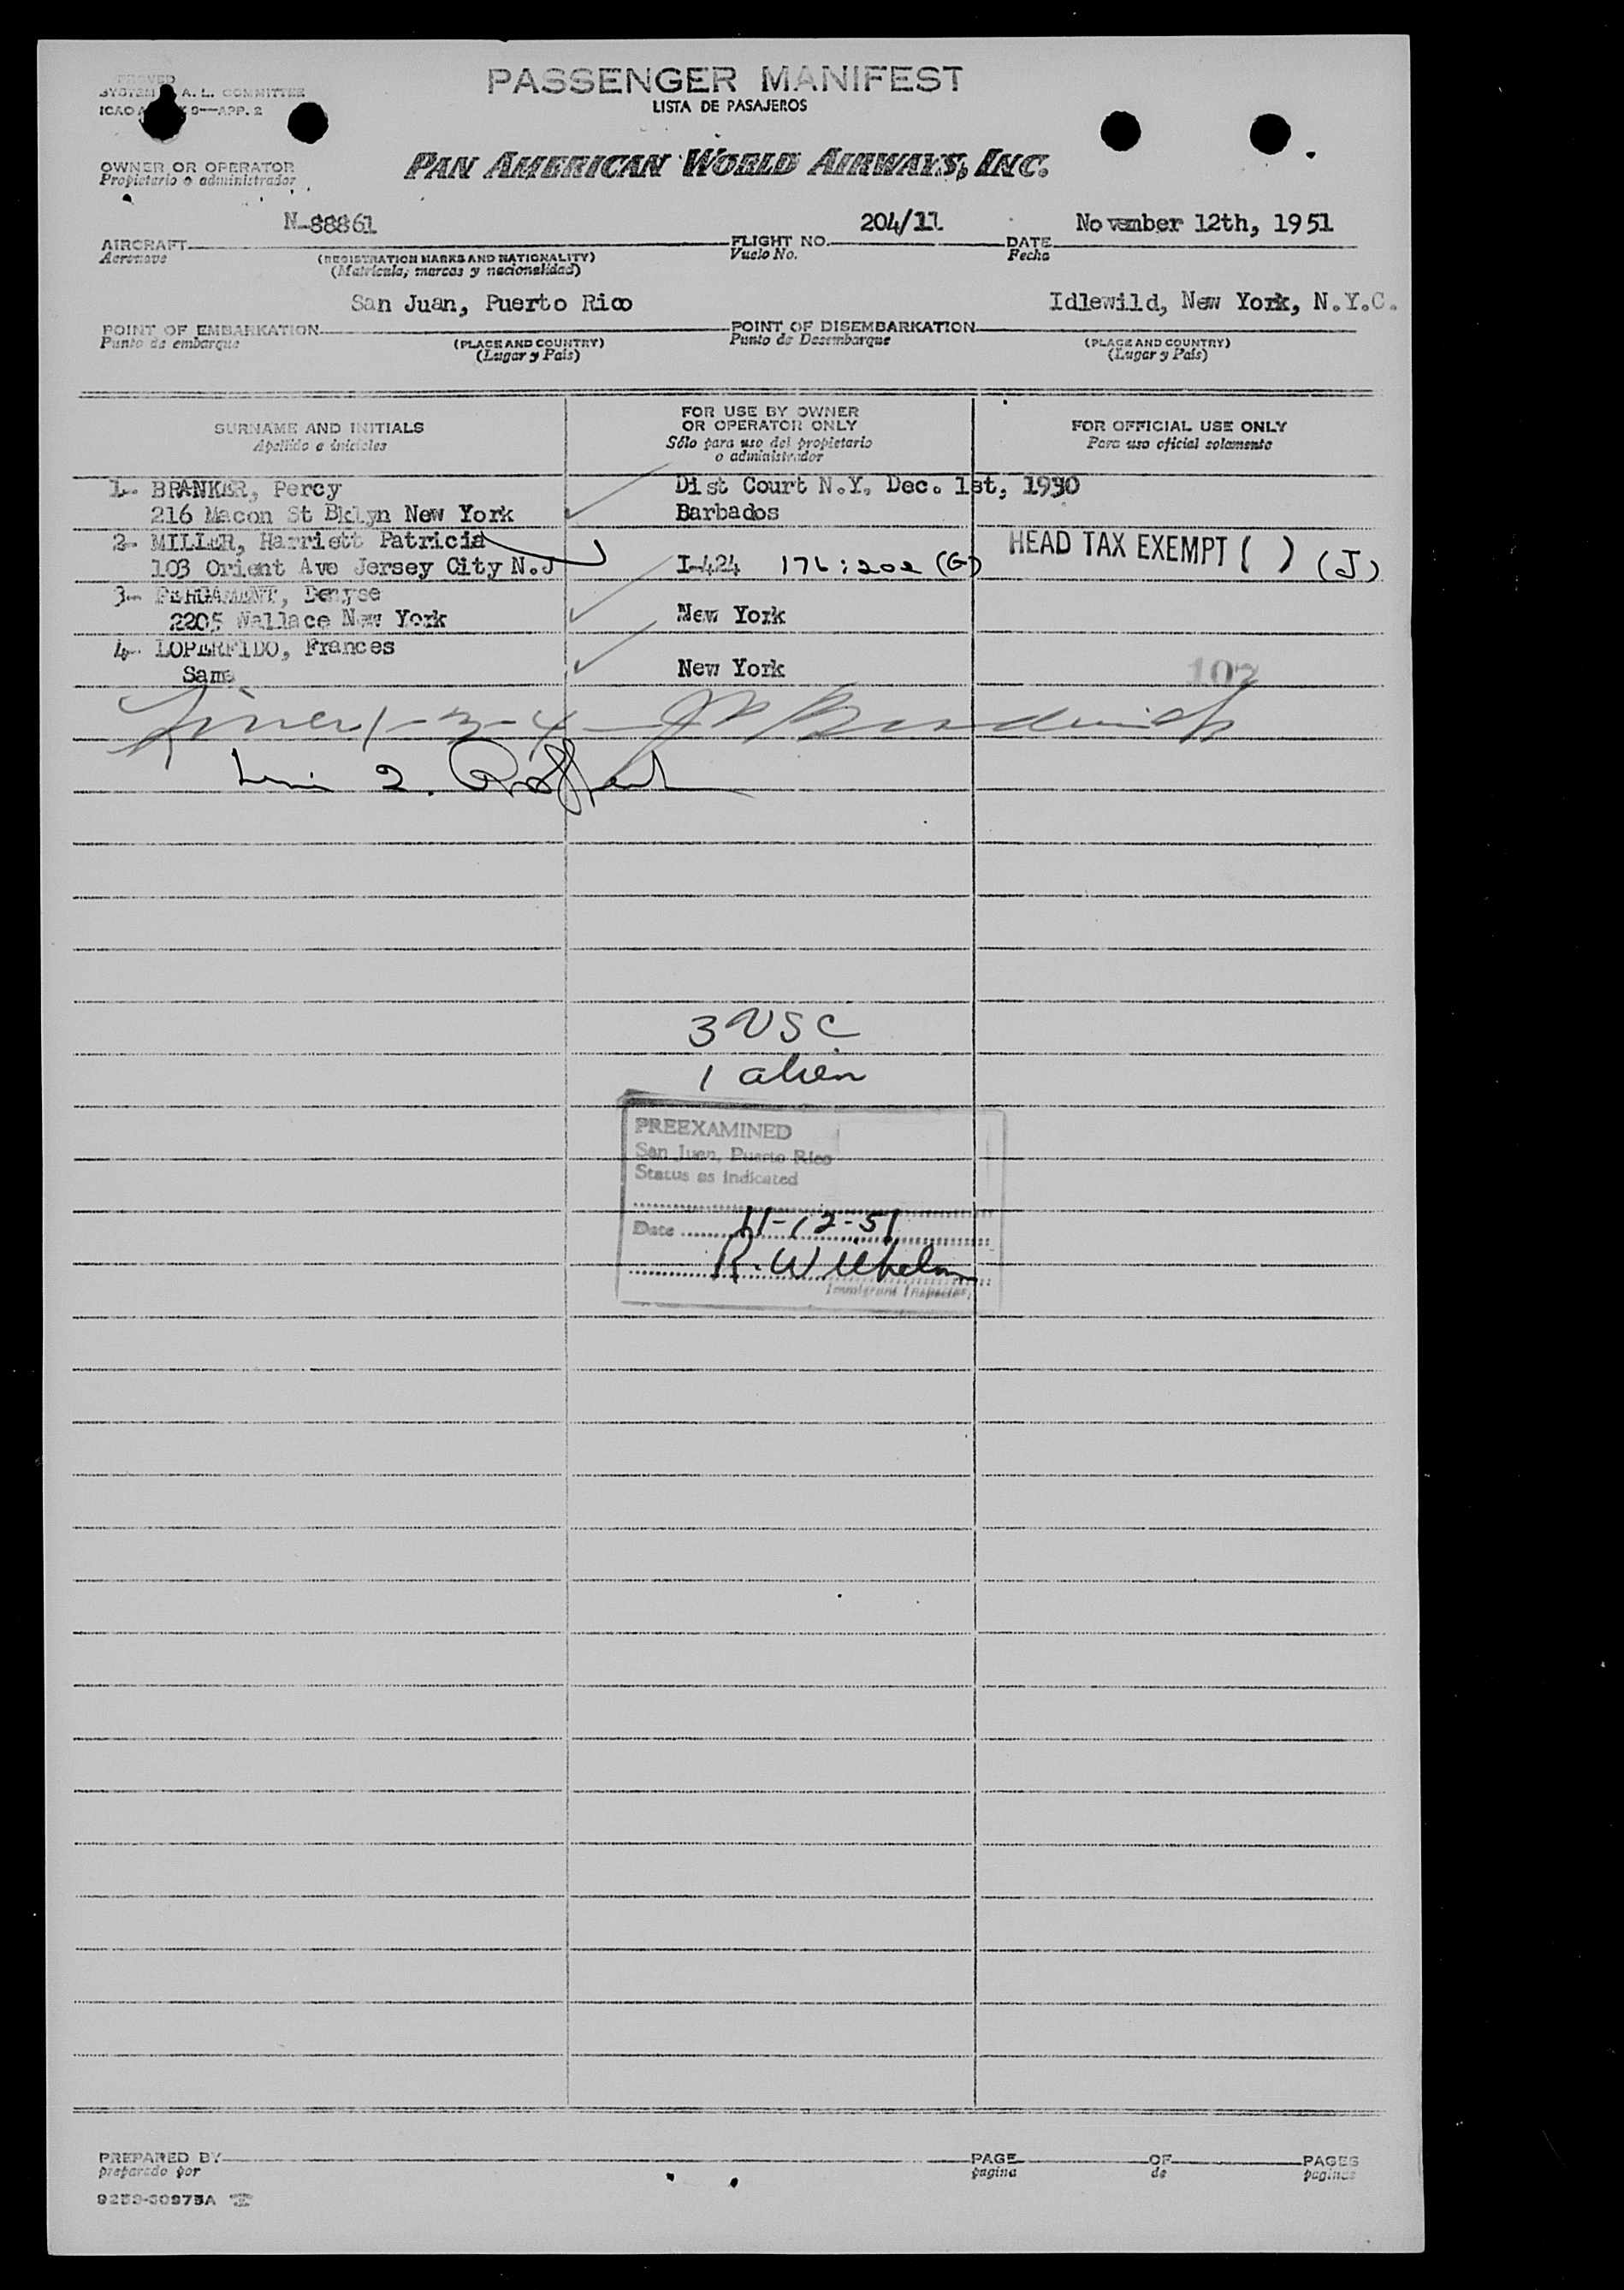 PASSENGER MANIFEST
LISTA DE PASAJEROS
A. L. COMMITTEE
ICAO 9—APP. 2
OWNER OR OPERATOR
Propietario o administrador
PAN AMERICAN WORLD AIRWAYS, INC.
N-88861 204/11 November 12th, 1951
AIRCRAFT FLIGHT NO. DATE
Aeronave (REGISTRATION MARKS AND NATIONALITY) Vuelo No. Fecha
(Matrícula, marcas y nacionalidad)
San Juan, Puerto Rico Idlewild, New York, N.Y.C.
POINT OF EMBARKATION POINT OF DISEMBARKATION
Punto de embarque (PLACE AND COUNTRY) Punto de Desembarque (PLACE AND COUNTRY)
(Lugar y País) (Lugar y País)
SURNAME AND INITIALS
Apellido e iniciales
FOR USE BY OWNER
OR OPERATOR ONLY
Sólo para uso del propietario
o administrador
FOR OFFICIAL USE ONLY
Para uso oficial solamente
1- BRANKER, Percy Dist Court N.Y. Dec. 1st, 1930
216 Macon St Bklyn New York Barbados
2- MILLER, Harriett Patricia HEAD TAX EXEMPT ( ) (J)
103 Orient Ave Jersey City N.J I-424 176:202 (G)
3- Denyse
2205 Wallace New York New York
4- LOPERFIDO, Frances
Same New York
107
Lines 1-3-4
2.
3 USC
1 alien
PREEXAMINED
San Juan, Puerto Rico
Status as indicated
Date 11-12-51
R. Wilhelm
Immigrant Inspector
PREPARED BY PAGE OF PAGES
preparado por pagina de paginas